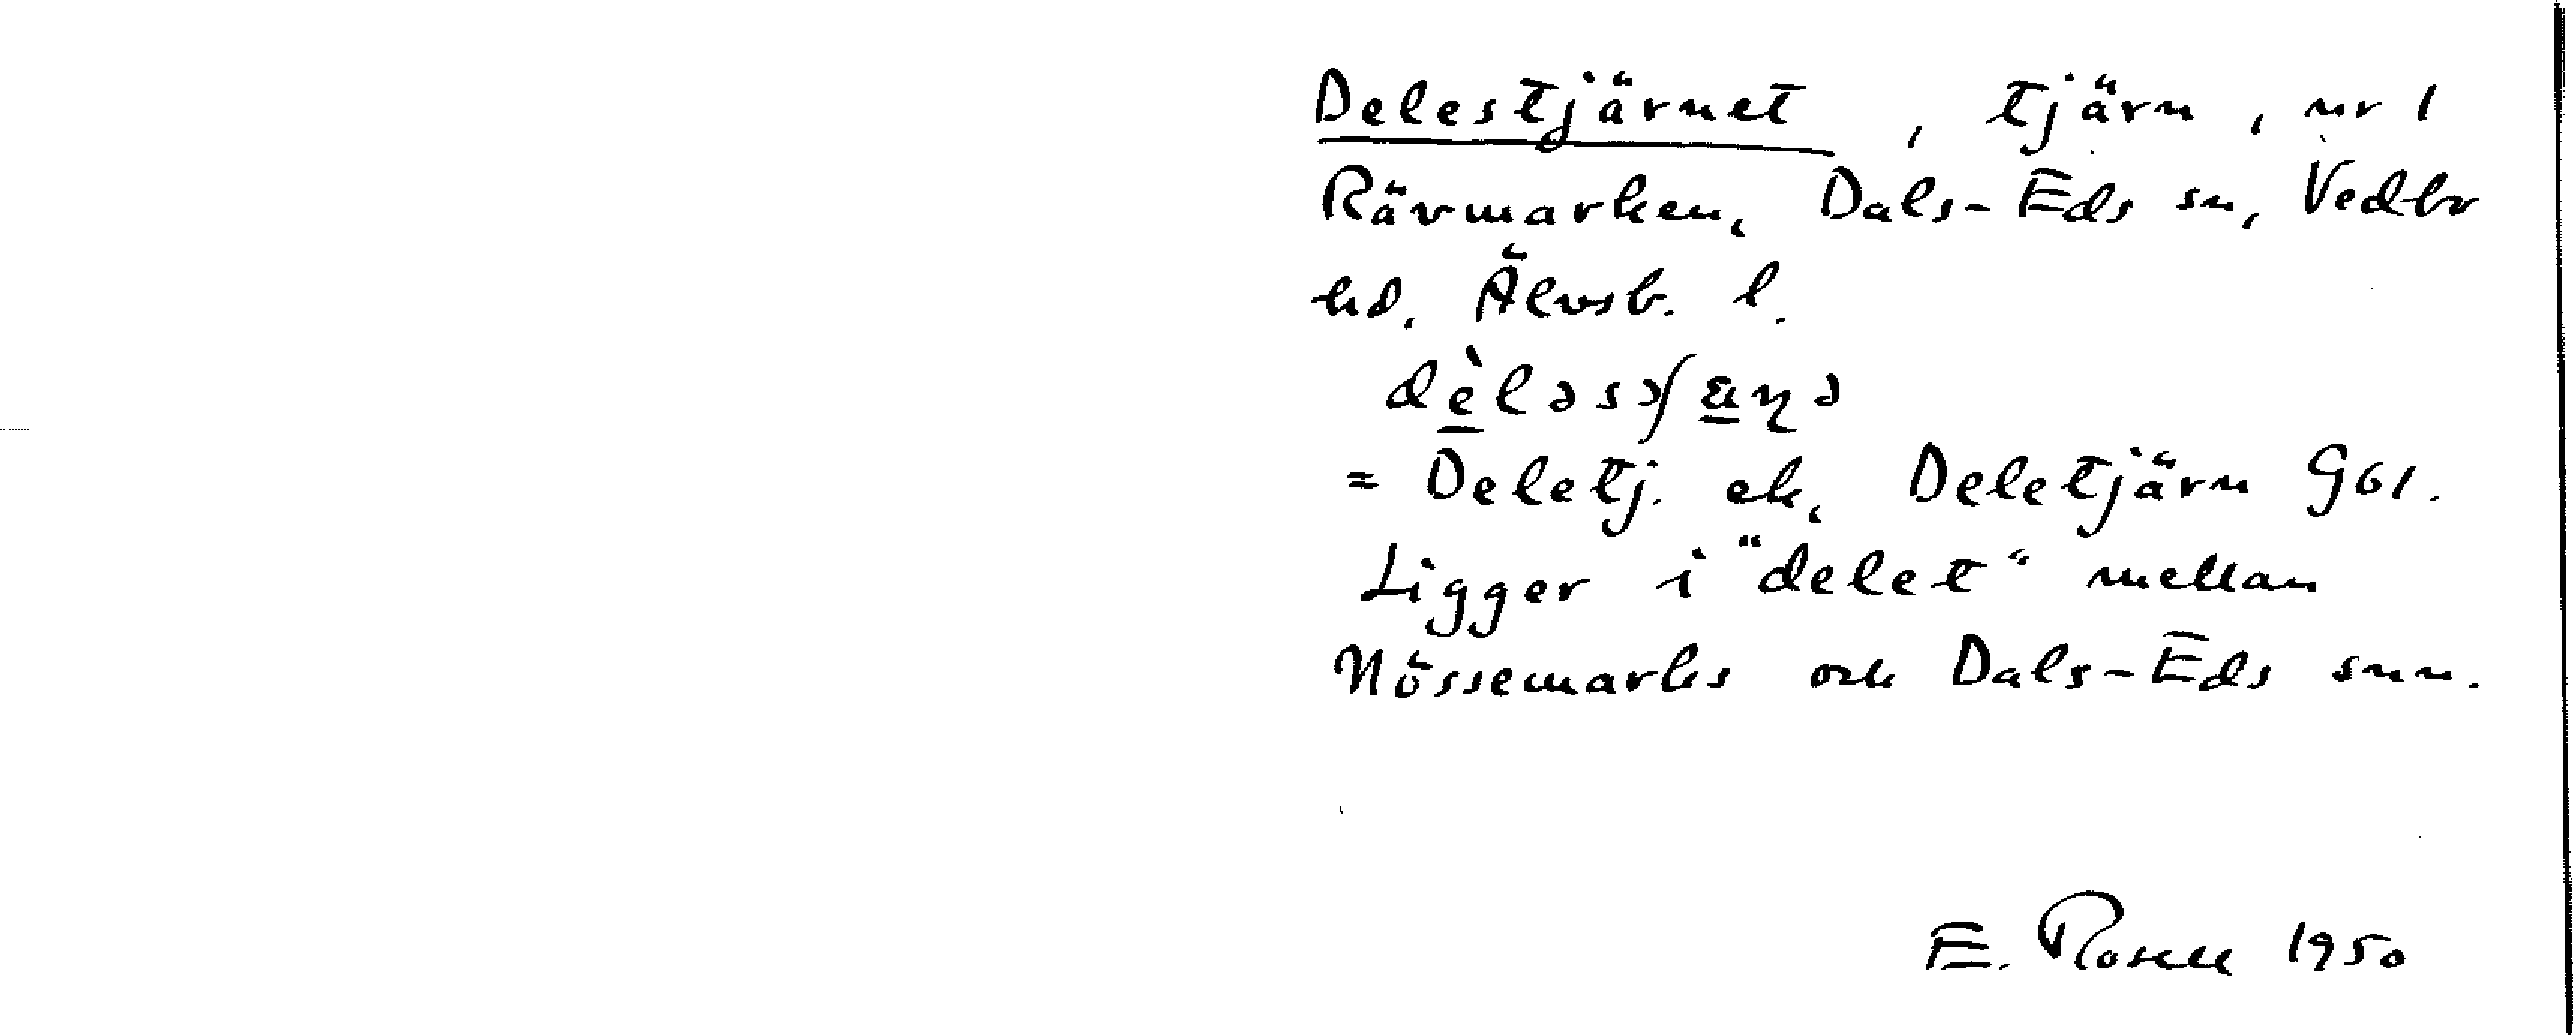 Delestjärnet, tjärn, nr 1
Rävmarken, Dals-Eds sn, Vedbo
hd. Älvsb. l.
= Deletj. ek, Deletjärn G61.
Ligger i "delet" mellan
Nössemarks och Dals-Eds snr.
E. Rosell 1950